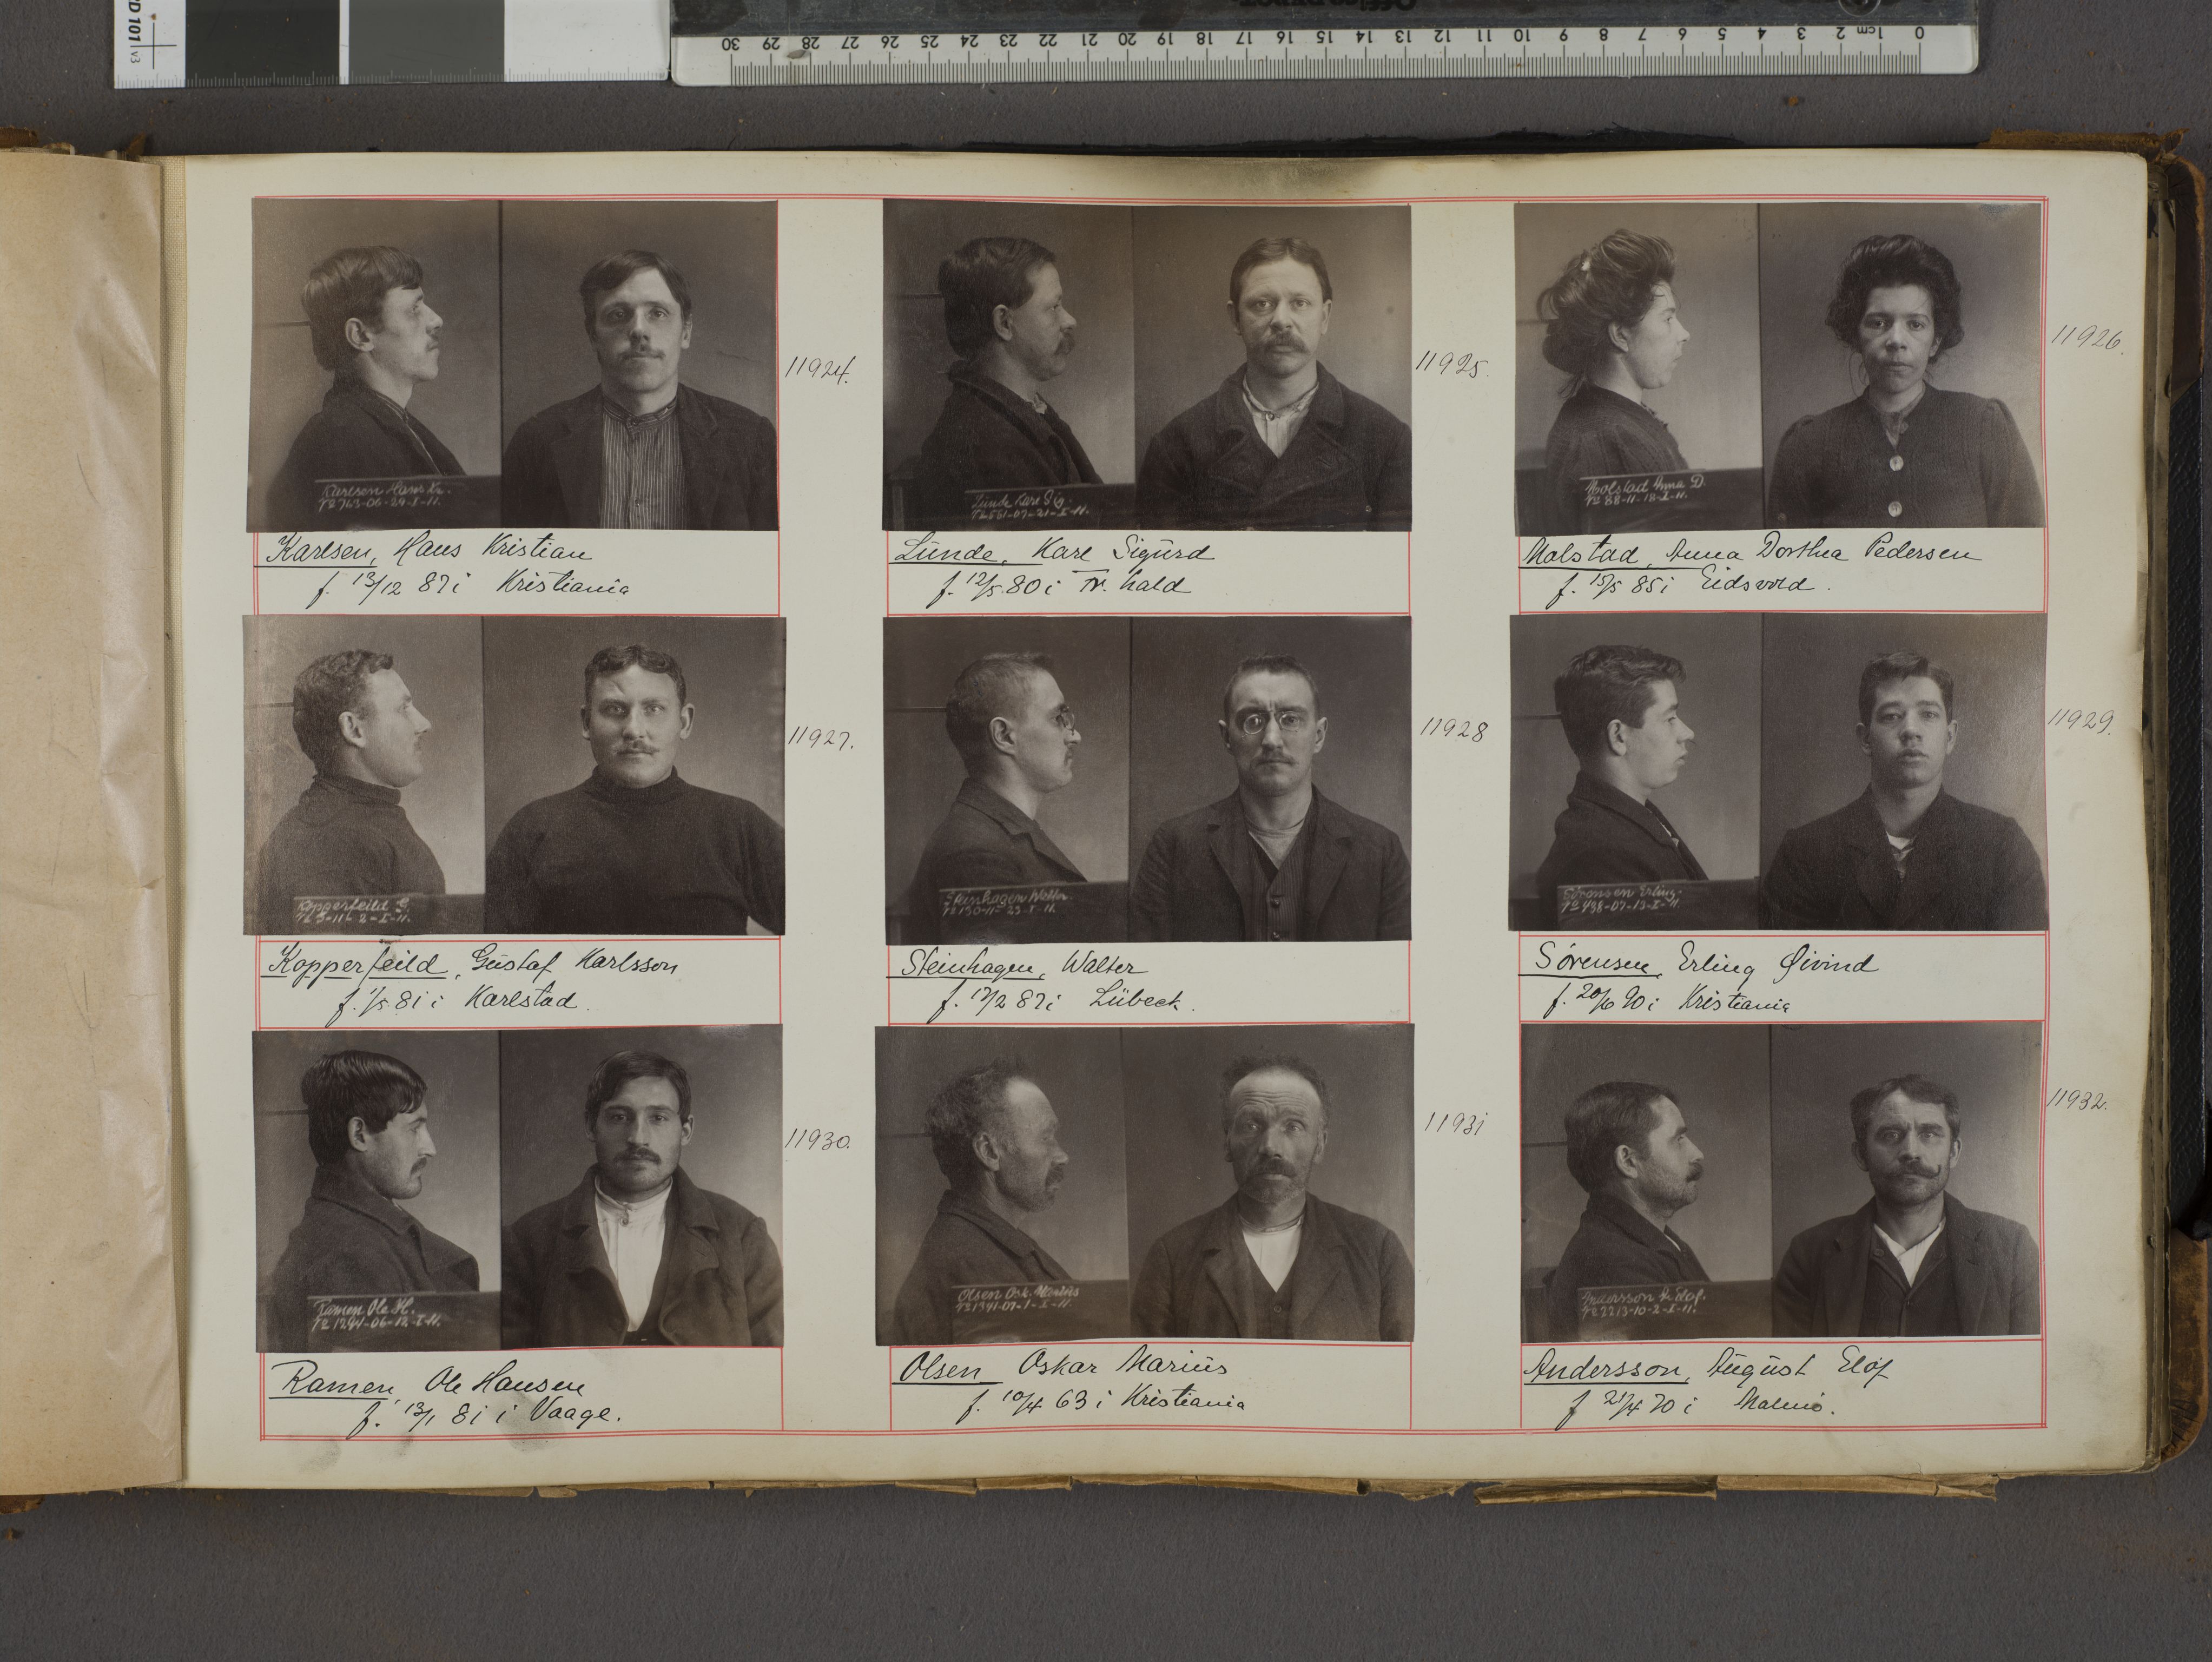 D 101 v3
0 1cm 2 3 4 5 6 7 8 9 10 11 12 13 14 15 16 17 18 19 20 21 22 23 24 25 26 27 28 29 30
11924.
Karlsen Hans Kr.
No 763-06-29-I-11.
Karlsen, Hans Kristian
f. 13/12 87 i Kristiania
11925.
Lunde Karl Sig.
No 551-07-21-I-11.
Lunde, Karl Sigurd
f. 12/5 80 i Fr. hald
11926.
Molstad Anna D.
No 88-11-18-I-11.
Molstad, Anna Dorthea Pedersen
f. 15/5 85 i Eidsvold.
11927.
Kopperfeild G.
No 5-11-2-I-11.
Kopperfeild, Gustaf Karlsson
f. 1/5 81 i Karlstad.
11928
Steinhagen Walter
No 130-11-23-I-11.
Steinhagen, Walter
f. 17/2 87 i Lübeck.
11929.
Sörensen Erling.
No 498-07-13-I-11.
Sörensen, Erling Øivind
f. 20/6 90 i Kristiania
11930.
Ramen Ole H.
No 1294-06-12-I-11.
Ramen, Ole Hansen
f. 13/1 81 i Vaage.
11931
Olsen Osk. Marius
No 1391-07-1-I-11.
Olsen Oskar Marius
f. 10/4 63 i Kristiania
11932.
Andersson A. Elof.
No 2213-10-2-I-11.
Andersson, August Elof
f 21/4 70 i Malmö.